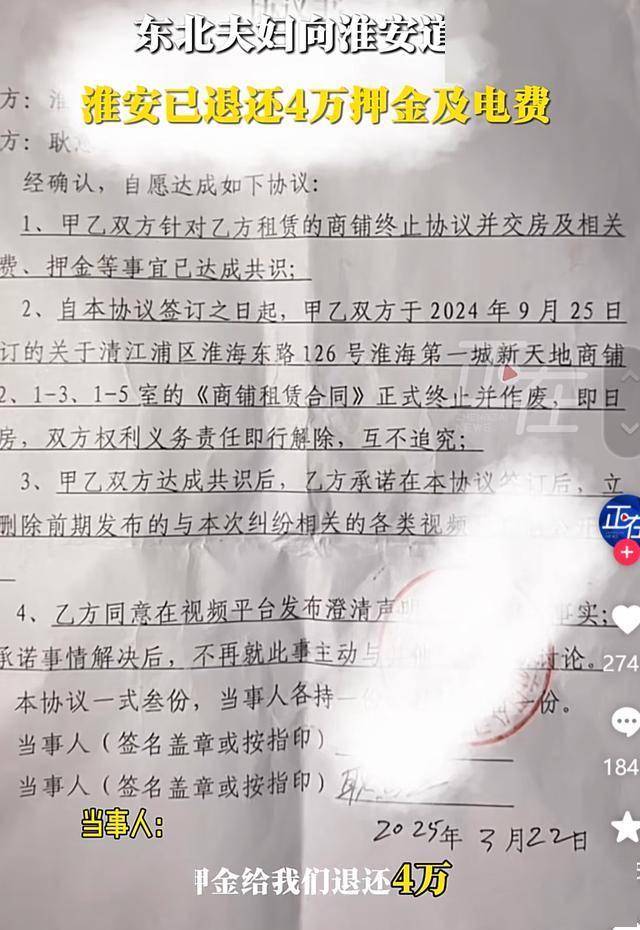 协议书
东北夫妇向淮安道
淮安已退还4万押金及电费
方：淮
方：耿
经确认，自愿达成如下协议：
1、甲乙双方针对乙方租赁的商铺终止协议并交房及相关
费、押金等事宜已达成共识;
2、自本协议签订之日起，甲乙双方于2024年9月25日
订的关于清江浦区淮海东路126号淮海第一城新天地商铺
2、1-3、1-5室的《商铺租赁合同》正式终止并作废，即日
房，双方权利义务责任即行解除，互不追究;
3、甲乙双方达成共识后，乙方承诺在本协议签订后，立
删除前期发布的与本次纠纷相关的各类视频
正在
NEWS
正在
4、乙方同意在视频平台发布澄清声明 事实;
承诺事情解决后，不再就此事主动与 讨论。
本协议一式叁份，当事人各持一份 一份。
当事人（签名盖章或按指印）
当事人（签名盖章或按指印）
274
184
当事人：
2025年3月22日
押金给我们退还4万